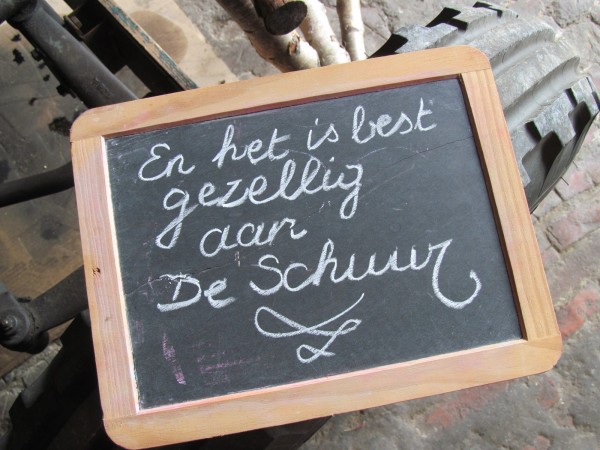 En het is best
gezellig
aan
De Schuur